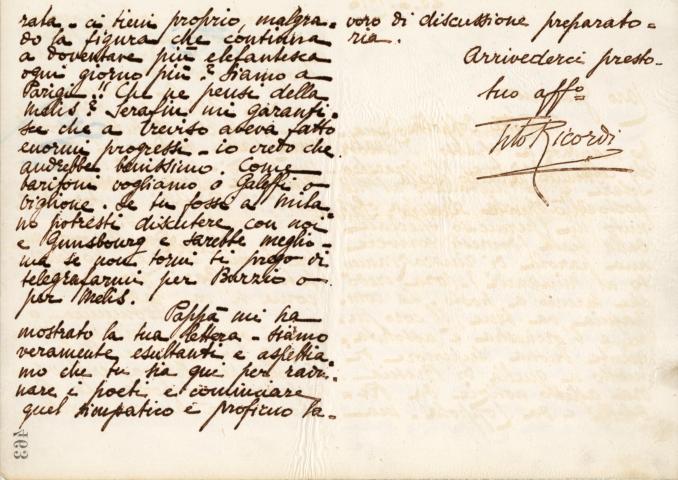 rata - ci tieni proprio, malgra-
do la figura che continua
a doventare più elefantesca
ogni giorno più? Siamo a
Parigi!! Che ne pensi della
Melis? Serafin mi garanti-
sce che a Treviso aveva fatto
enormi progressi - io credo che
andrebbe benissimo. Come
baritoni vogliamo o Galeffi o
Viglione. Se tu fossi a Mila-
no potresti discutere con noi
e Gunsbourg e sarebbe meglio -
ma se non torni ti prego di
telegrafarmi per Burzio o
per Melis.
Pappà mi ha
mostrato la tua lettera - siamo
veramente esultanti e aspettia-
mo che tu sia qui per radu-
nare i poeti e cominciare
quel simpatico e proficuo la-
voro di discussione preparato-
ria.
Arrivederci presto -
tuo affo
Tito Ricordi
463